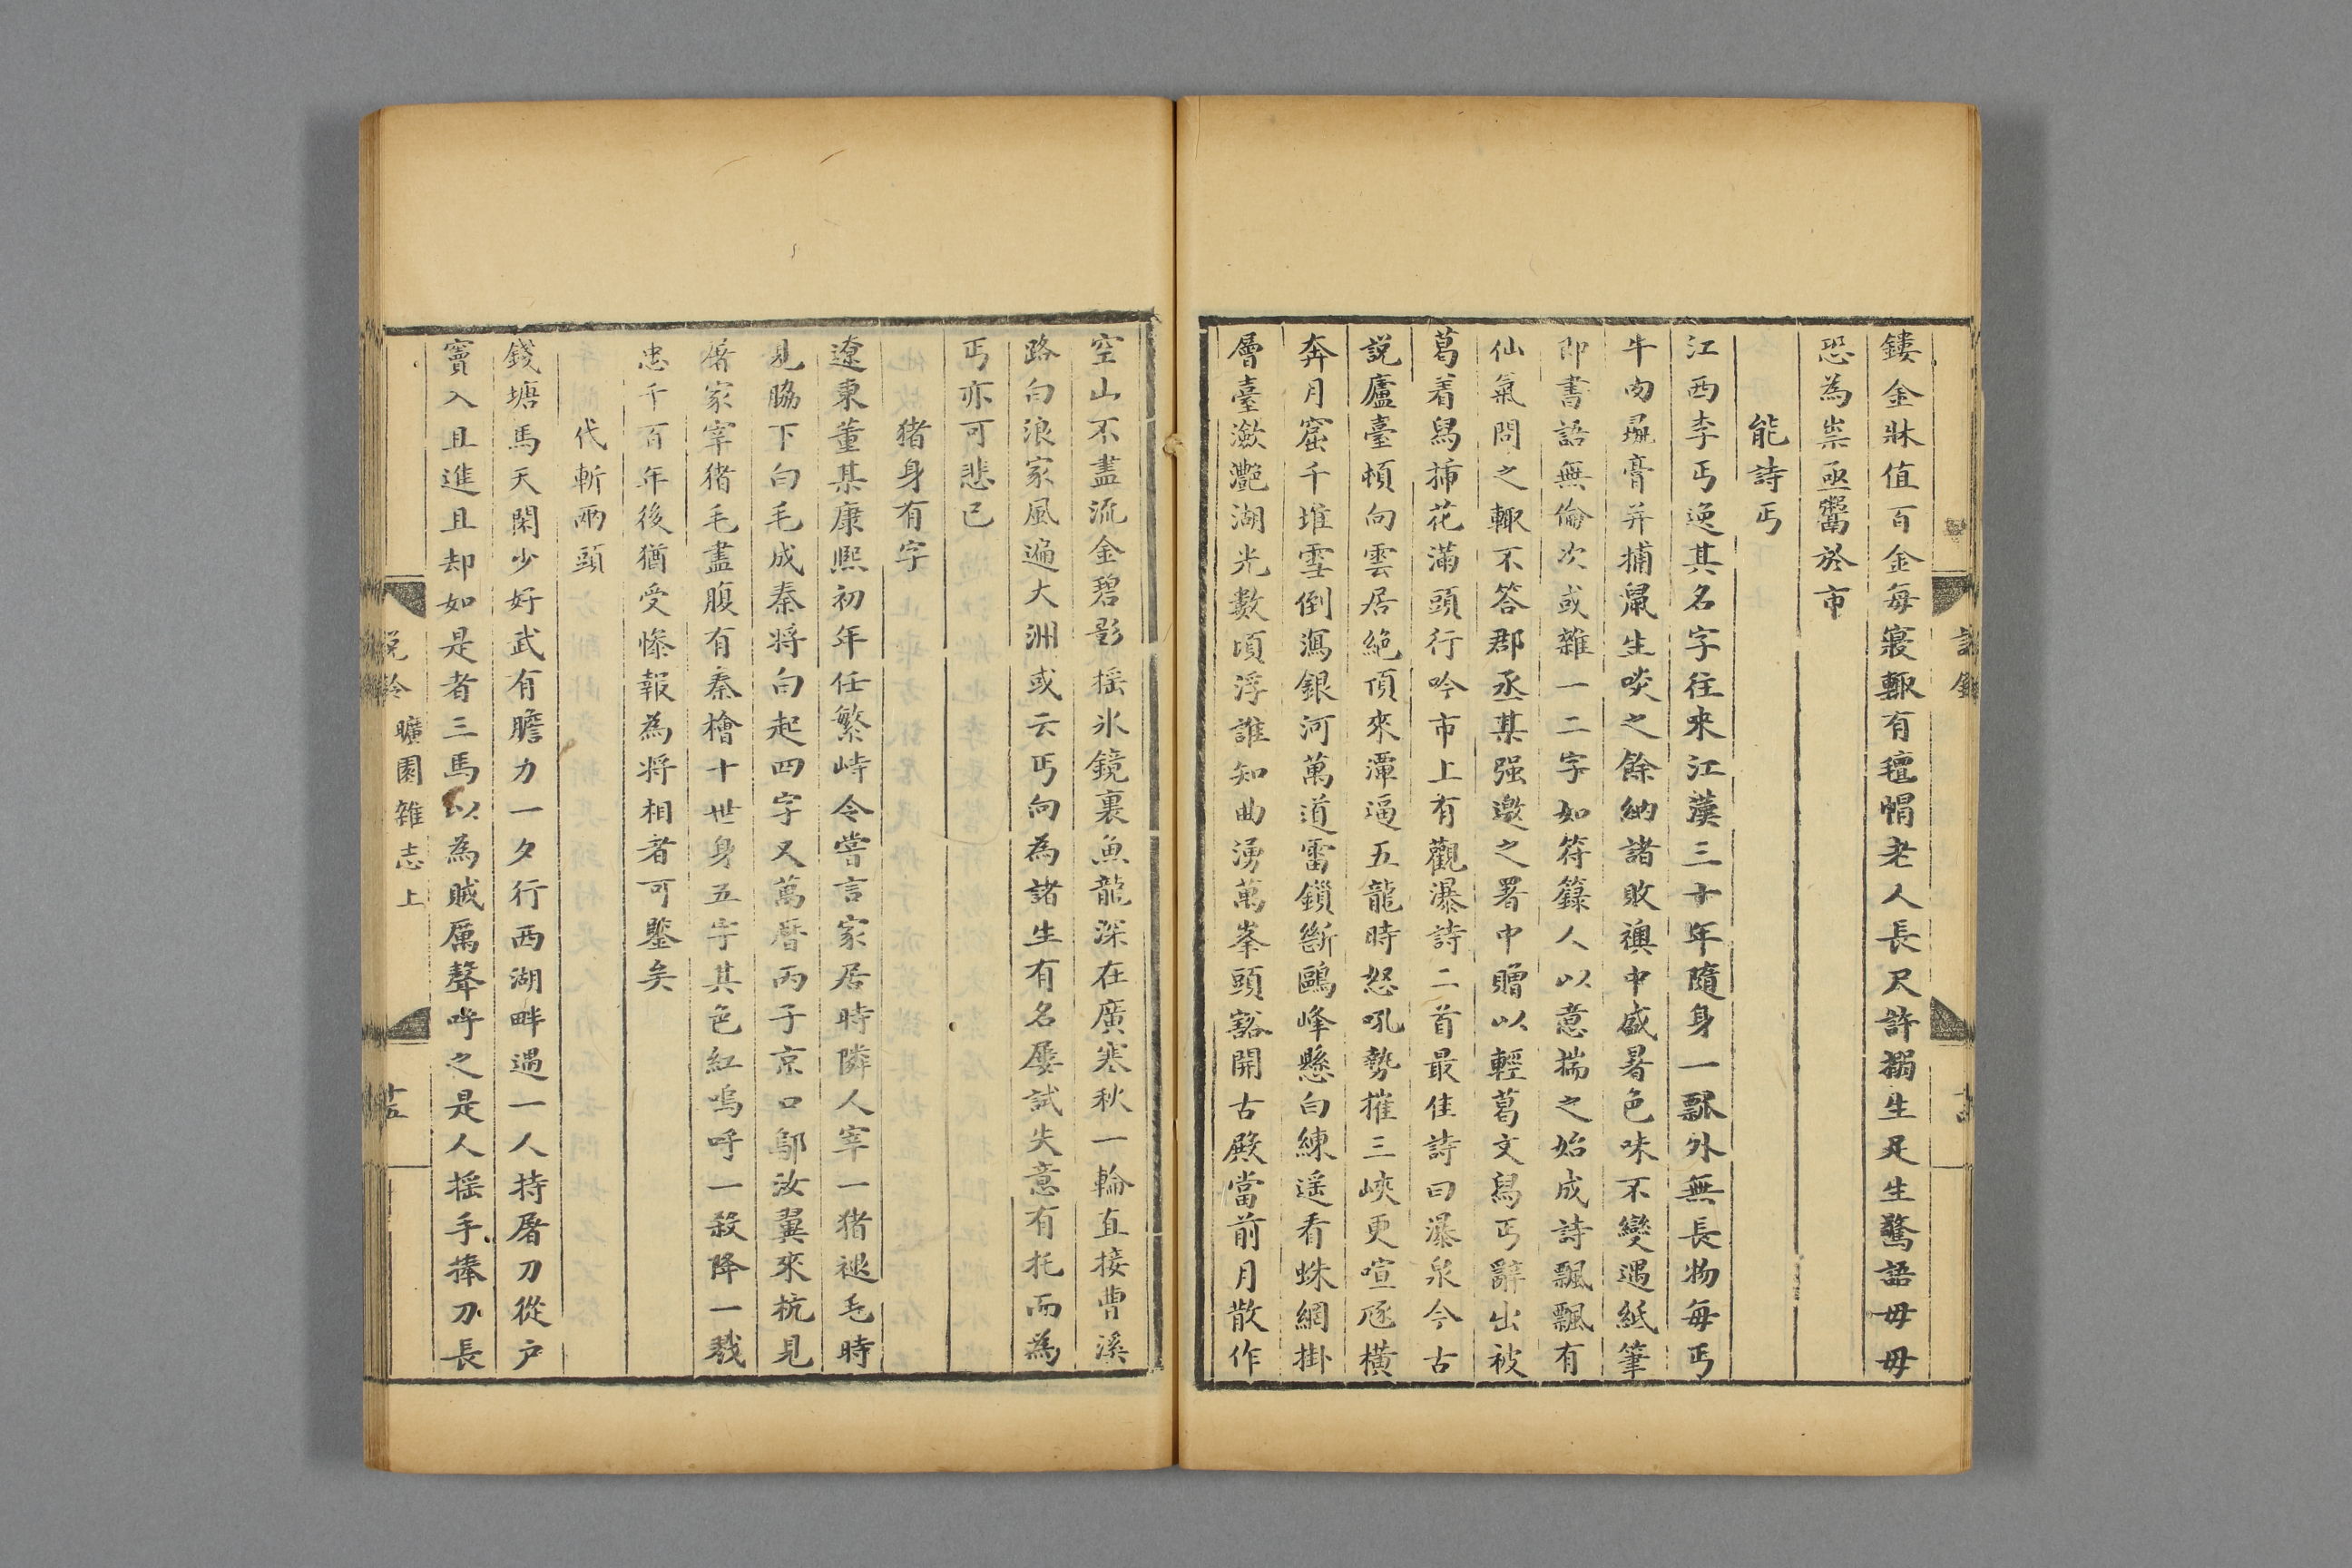 鏤金牀值百金每寢輒有氊帽老人長尺許搦生足生驚語毋毋
恐為祟亟鬻於市
能詩丐
江西李丐逸其名字往來江漢三十年隨身一瓢外無長物每丐
牛肉鼠膏并捕鼠生啖之餘納諸敗襖中盛暑色味不變遇紙筆
即書語無倫次或雜一二字如符籙人以意揣之始成詩飄飄有
仙氣問之輒不答郡丞某强邀之署中贈以輕葛文舄丐辭出被
葛着舄插花滿頭行吟市上有觀瀑詩二首最佳詩曰瀑泉今古
説廬臺頓向雲居絶頂來潭逼五龍時怒吼勢摧三峽更喧豗橫
奔月窟千堆雪倒瀉銀河萬道雷鎖斷鷗峰懸白練遥看蛛網掛
層臺瀲灔湖光數頃浮誰知曲湧萬峯頭豁開古殿當前月散作
空山不盡流金碧影摇氷鏡裏魚龍深在廣寒秋一輪直接曹溪
路白浪家風遍大洲或云丐向為諸生有名屡試失意有托而為
丐亦可悲已
猪身有字
遼東董某康熙初年任繁峙令嘗言家居時隣人宰一猪褪毛時
見脇下白毛成秦将白起四字又萬曆丙子京口鄔汝翼來杭見
屠家宰猪毛盡腹有秦檜十世身五字其色紅嗚呼一殺降一戕
忠千百年後猶受慘報為将相者可鑒矣
代斬兩頭
錢塘馬天閑少好武有膽力一夕行西湖畔遇一人持屠刀從户
竇入且進且却如是者三馬以為賊厲聲呼之是人摇手捧刀長
説鈴 曠園雜志上 十五